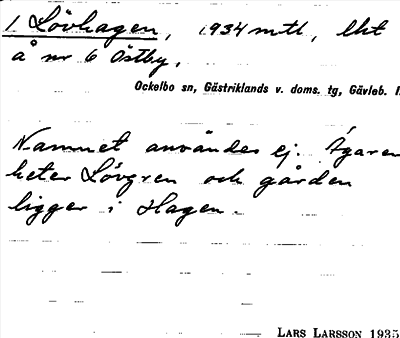 1 Lövhagen, 1934 mtl, lht
å nr 6 Östby.
Ockelbo sn, Gästriklands v. doms. tg, Gävleb. l
Namnet användes ej. Ägaren
heter Lövgren och gården
ligger i Hagen.
LARS LARSSON 1935